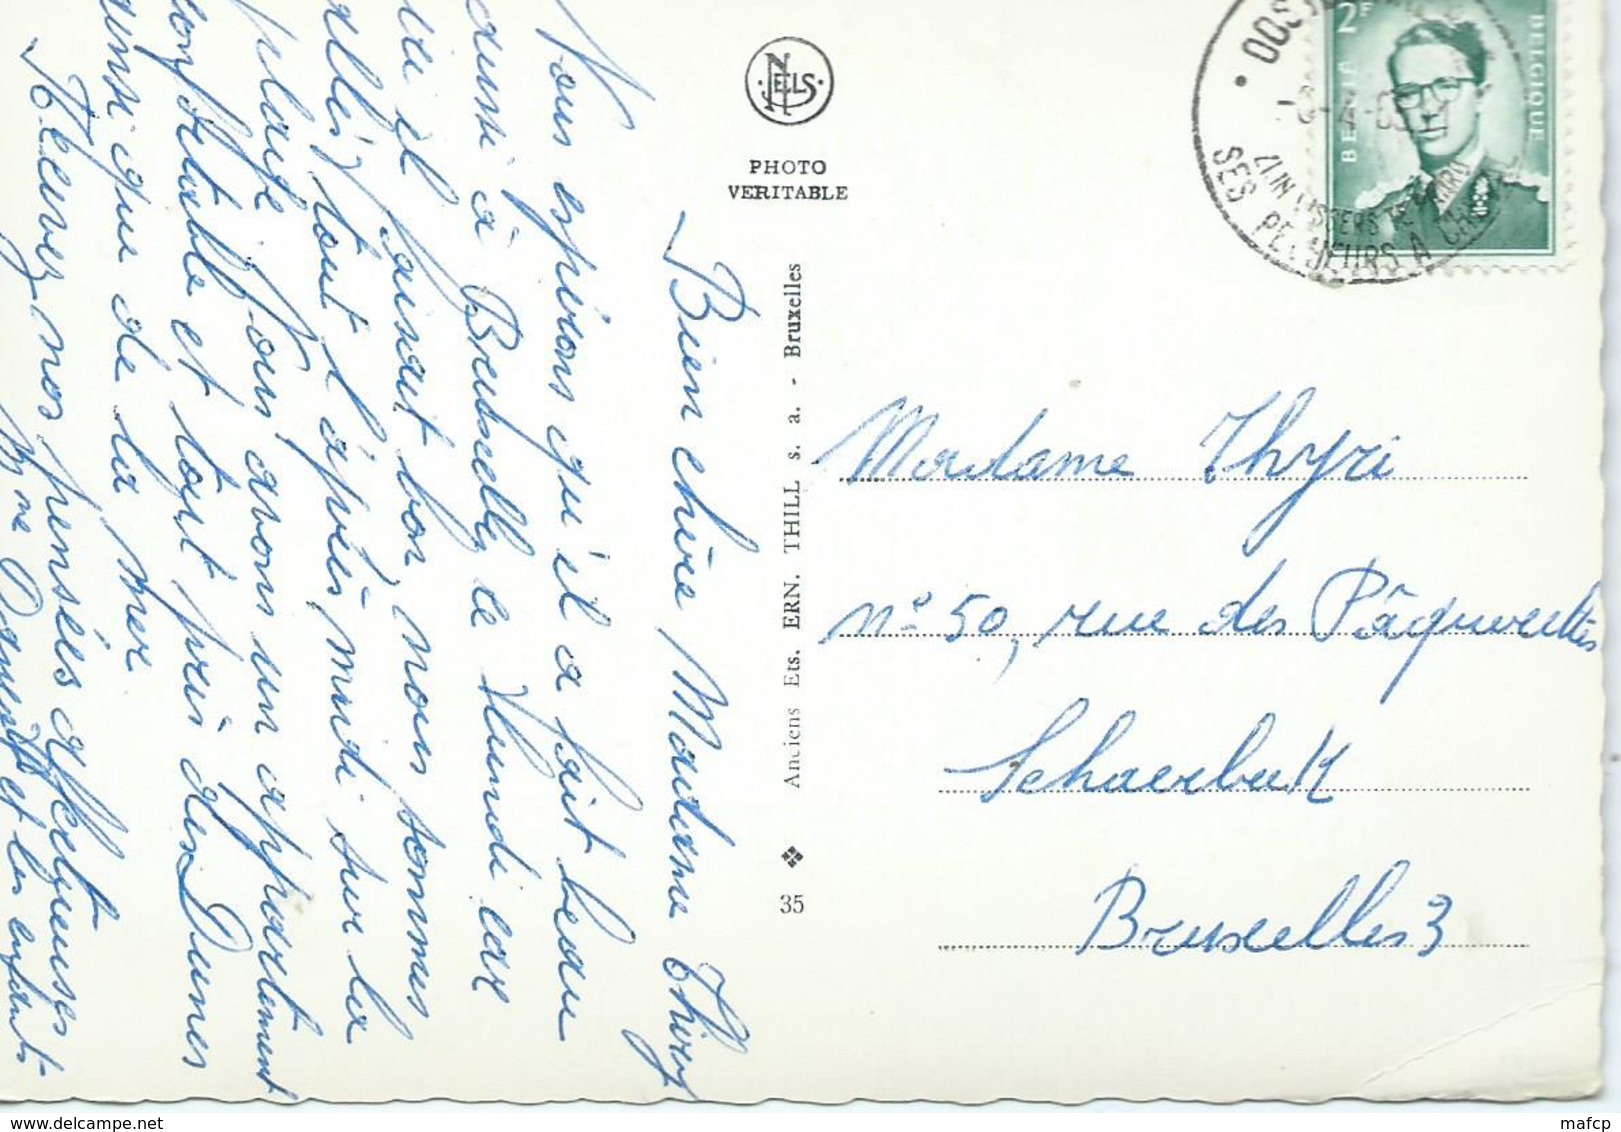 Bien chère Madame Thiry
Nous espérons qu'il a fait beau
aussi à Bruxelles le lundi car
ici il faisait bon, nous sommes
allés tout l'après midi sur la
plage. Nous avons un appartement
confortable et tout près des Dunes
ainsi que de la mer
Recevez nos pensées affectueuses
Mme et les enfants
NELS
PHOTO
VERITABLE
Anciens Ets. ERN. THILL s. a. - Bruxelles
35
BELGIE BELGIQUE
2F
ZIJN VISSERS TE PAARD
SES PECHEURS A CHEVAL
Madame Thyri
n° 50, rue des Pâquerettes
Schaerbeek
Bruxelles 3
mafcp